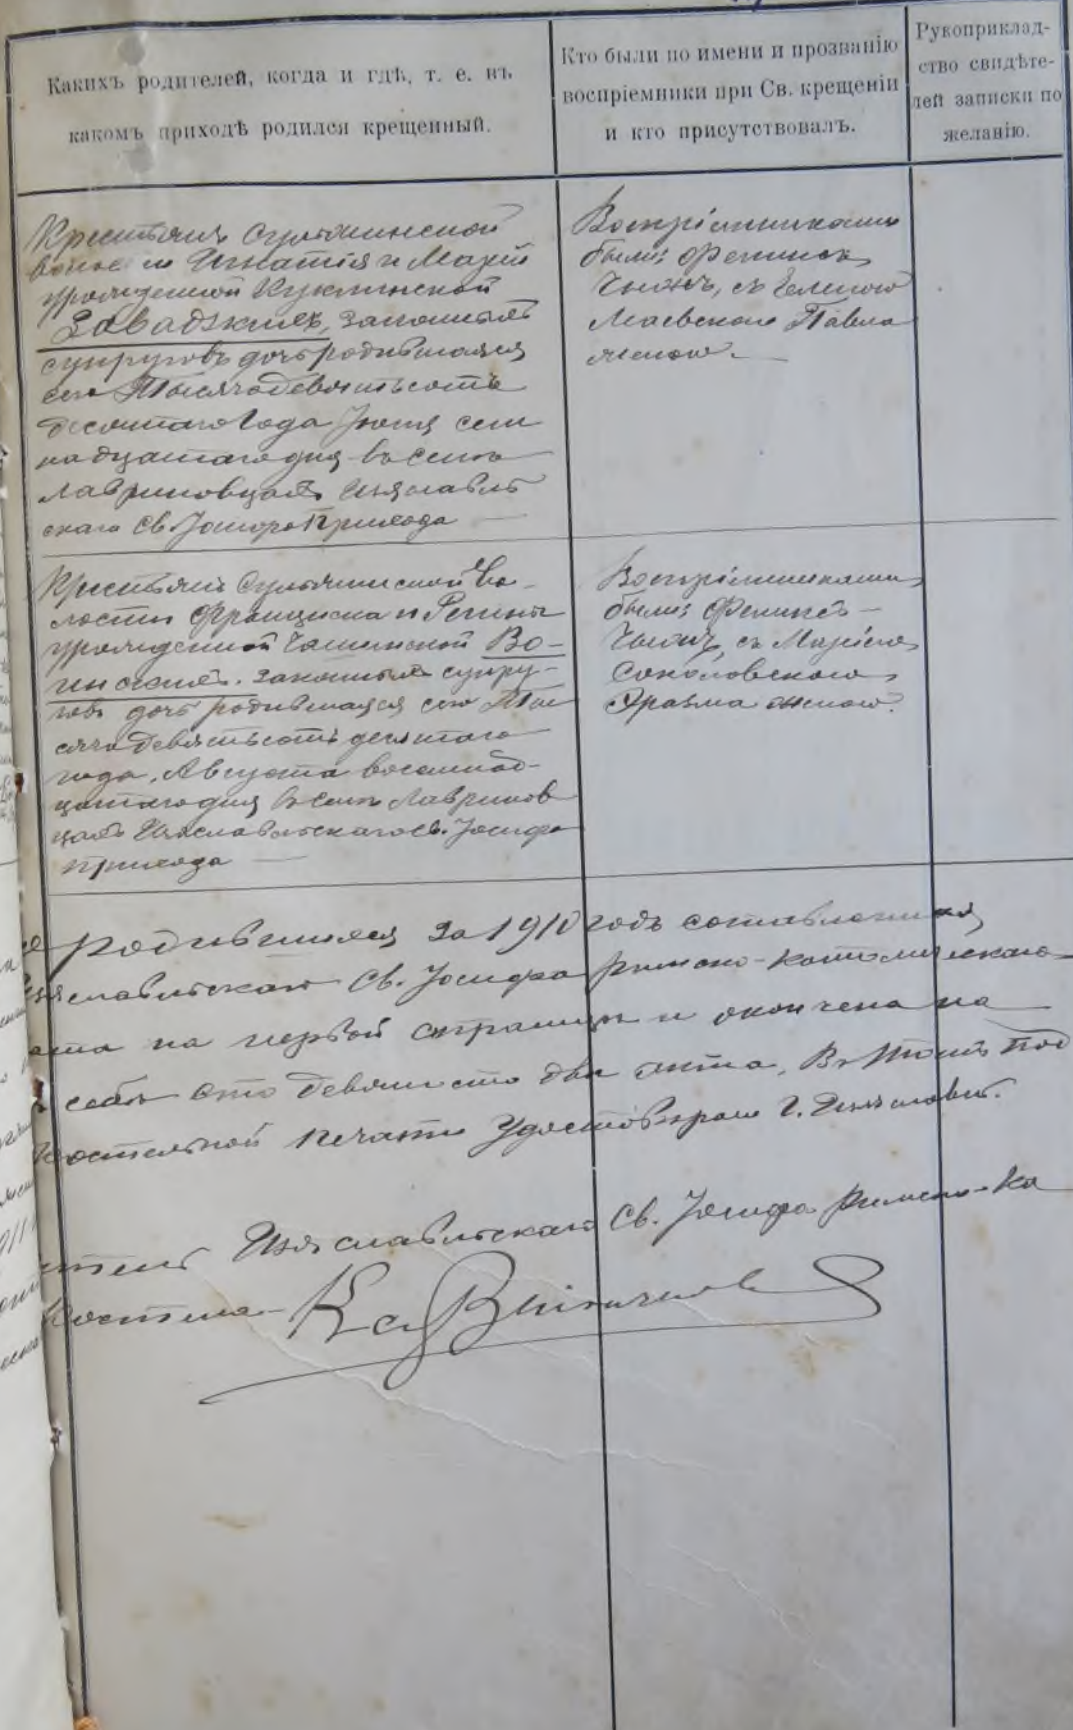 Какихъ родителей, когда и гдѣ, т. е. въ
какомъ приходѣ родился крещенный.
Кто были по имени и прозванію
воспріемники при Св. крещеніи
и кто присутствовалъ.
Рукоприклад-
ство свидѣте-
лей записки по
желанію.
Крестьянъ Сульжинской
Игнатія и Маріи
урожденной Куклинской
Завадзкихъ, законныхъ
супруговъ дочь родившаяся
сего Тысяча девятьсотъ
десятаго года Іюня сем
надцатаго дня въ селѣ
Лавриновцахъ Изяславль
скаго Св. Іосифа Прихода
Воспріемниками
были: Феликсъ
съ Еленою
Маевскою Павла
женою.
Крестьянъ Сульжинской во-
лости Франциска и Регины
урожденной Во-
гинскихъ. законныхъ супру-
говъ дочь родившаяся сего Ты
сяча девятьсотъ десятаго
года, Августа восемнад-
цатаго дня въ селѣ Лавринов
цахъ Изяславльскаго Св. Іосифа
Прихода
Воспріемниками
были: Феликсъ
съ Маріею
Соколовскою,
Эразма женою.
родившихся за 1910 годъ
Св. Іосифа римско-католическаго
на первой страницѣ и окончена на
себѣ сто девяносто два акта, въ томъ под
печати удостовѣряю г. Изяславль.
Изяславльскаго Св. Іосифа Римско-Ка
костела